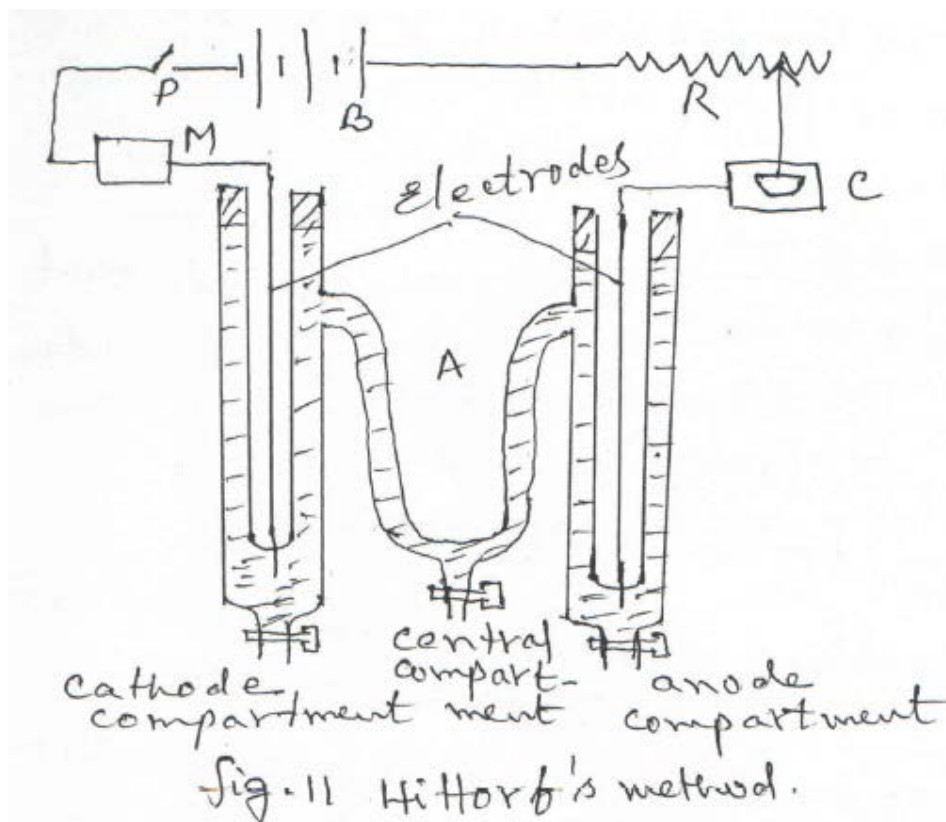 P
B
R
M
Electrodes
C
A
cathode
compartment
central
compart-
ment
anode
compartment
fig. 11 Hittorf's method.